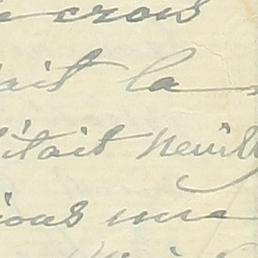 crois
ait la
était Neuill
ions une